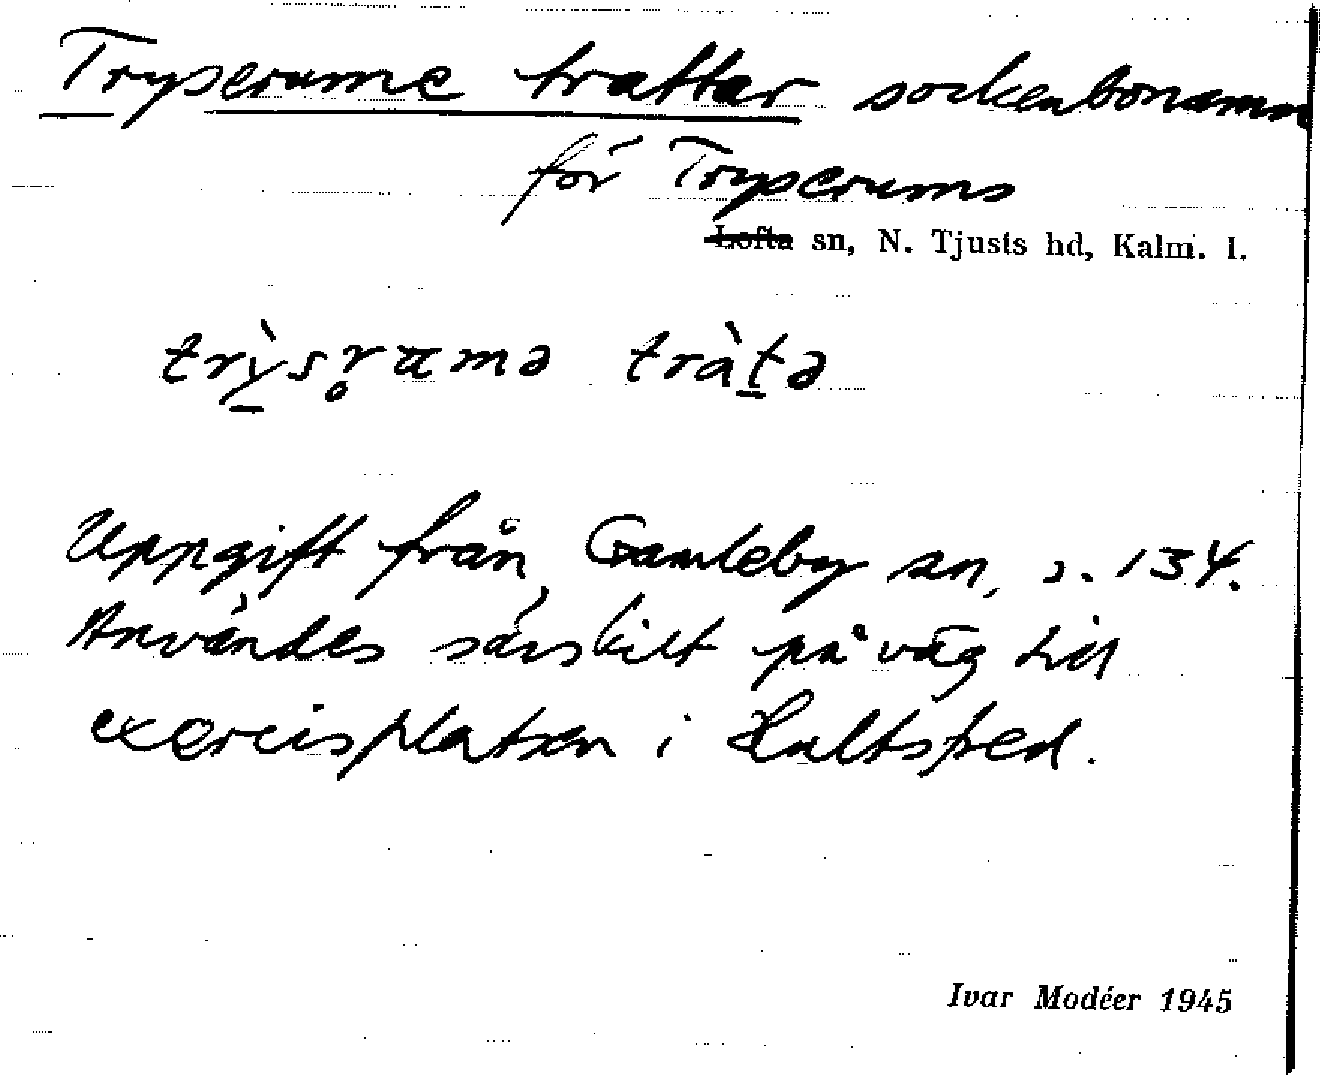 Tryserume trattar sockenbonamn
för Tryserums
Lofta sn, N. Tjusts hd, Kalm. l.
trỳsr̥ɑmə tràtə
Uppgift från Gamleby sn, s. 134.
Användes särskilt på väg till
exercisplatsen i Hultsfred.
Ivar Modéer 1945